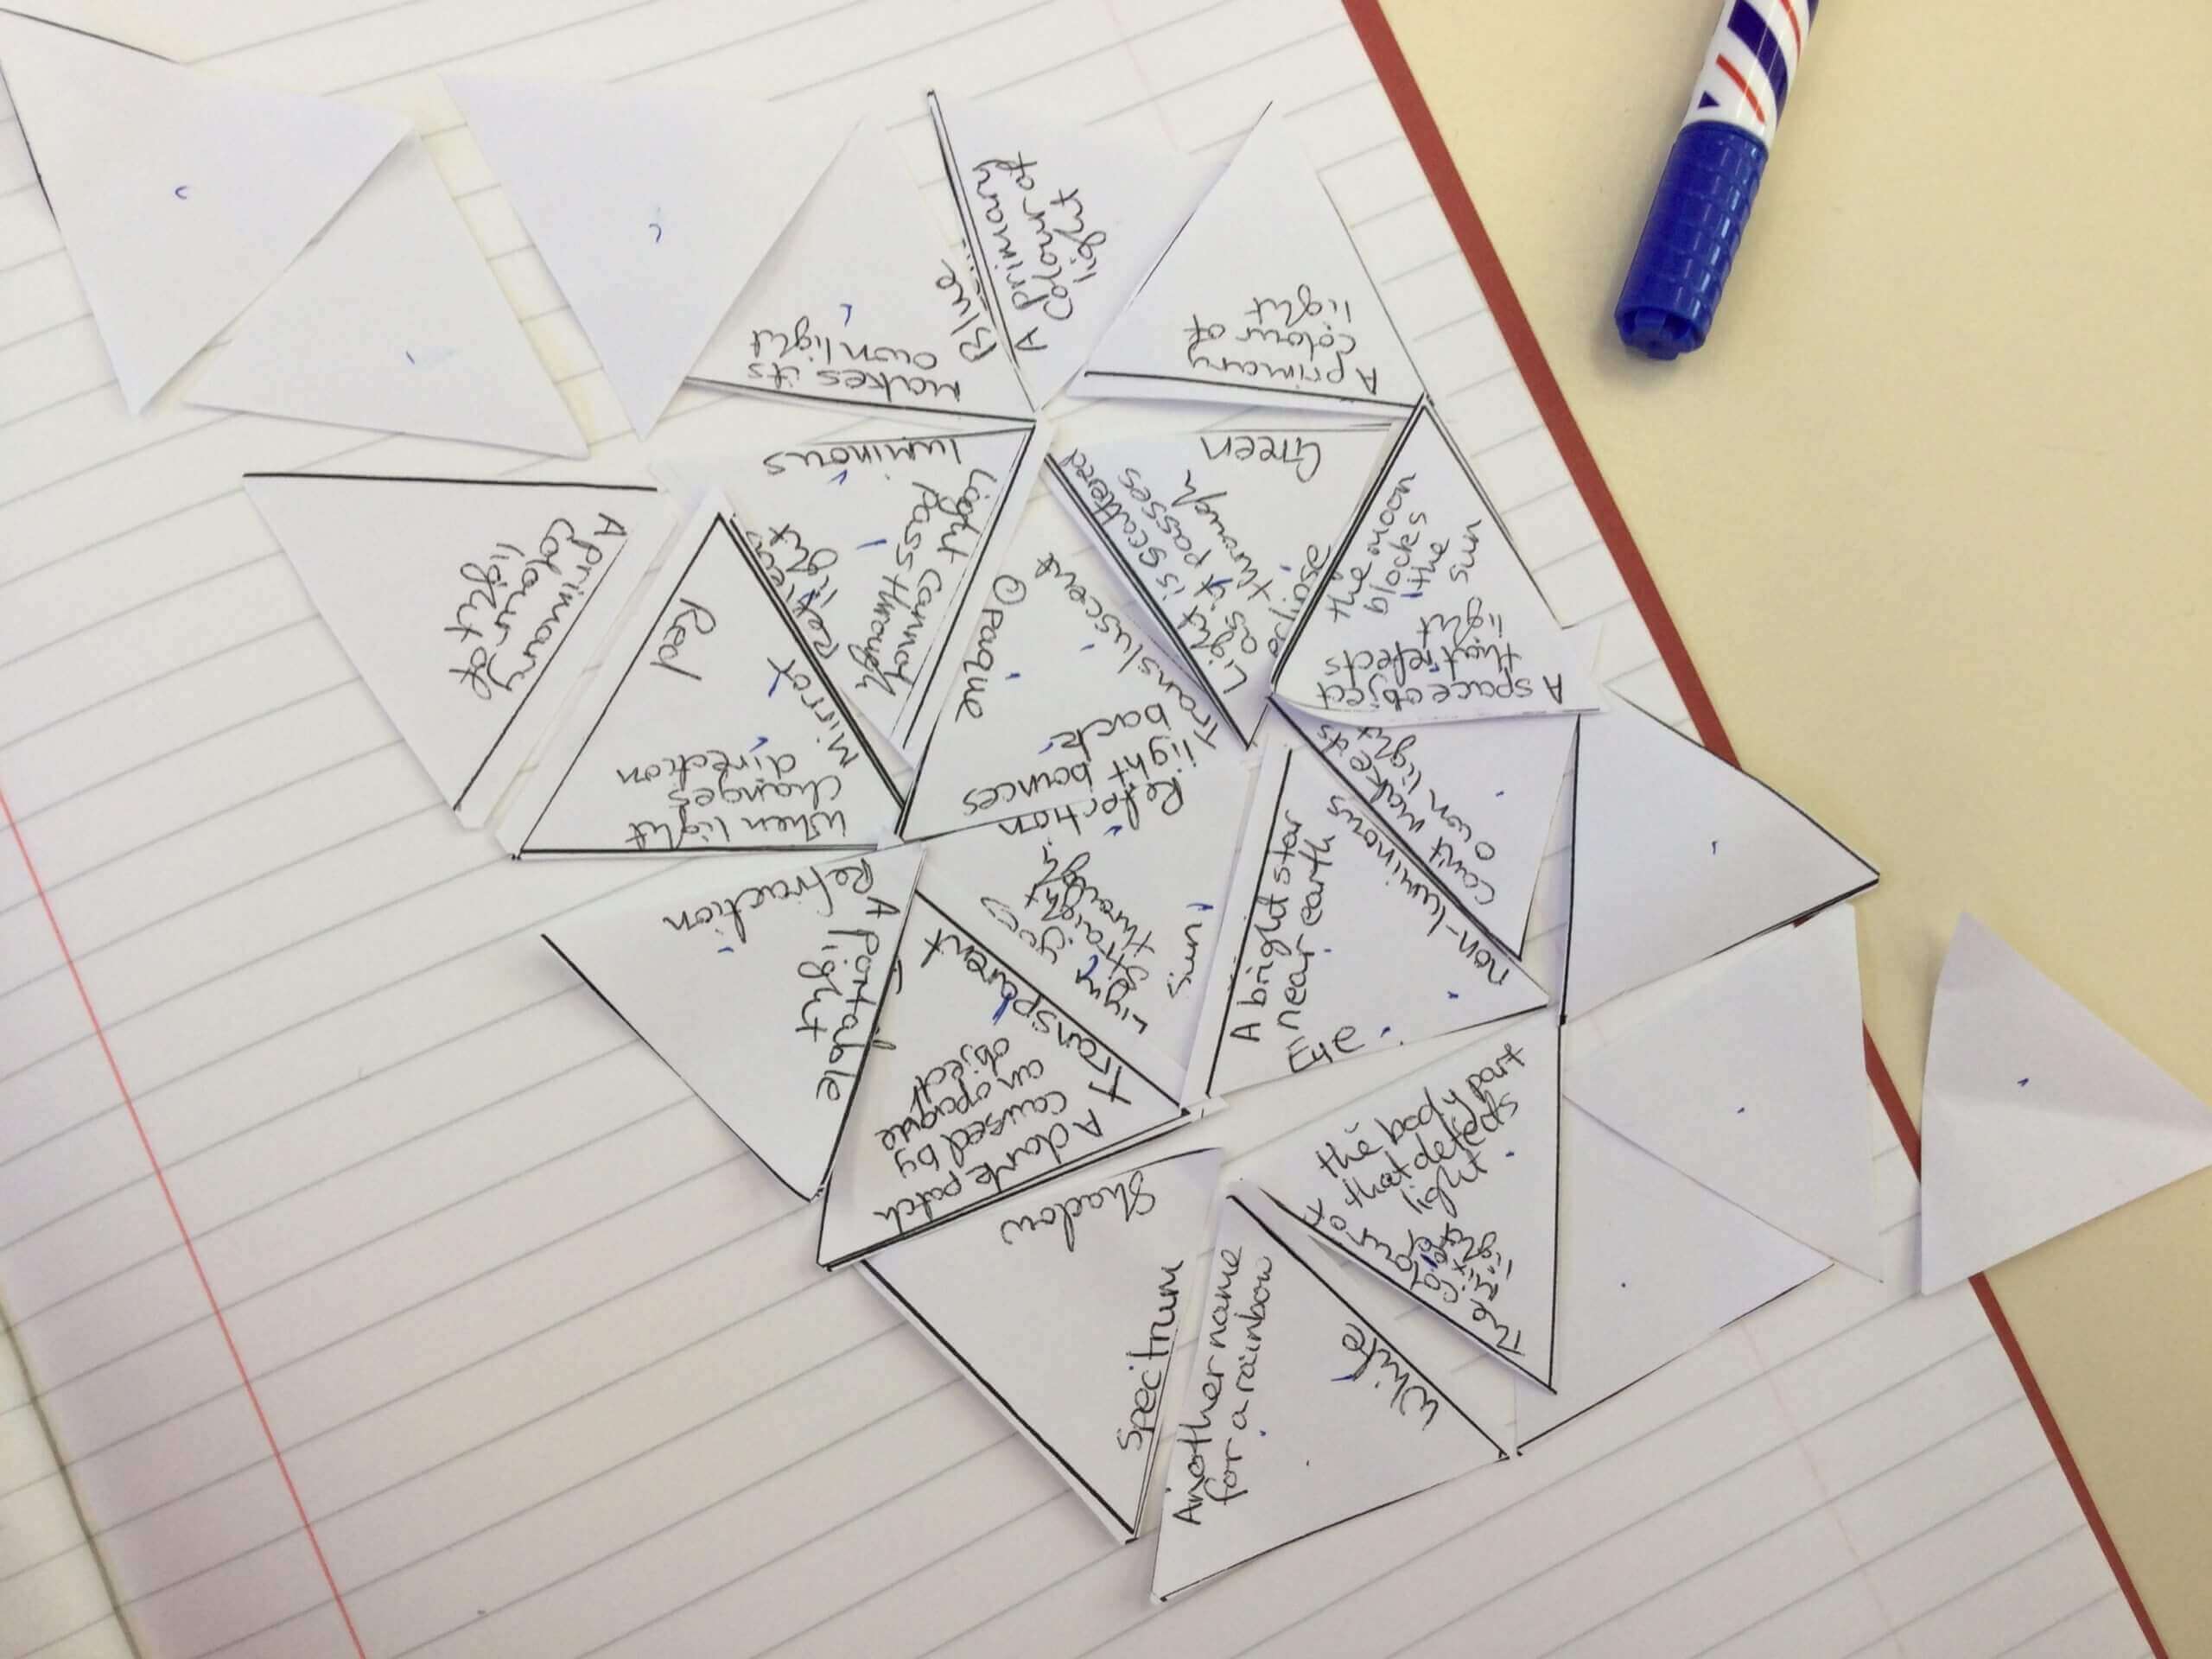 A primary
colour of
light
Blue
Makes its
own light
A primary
colour of
light
luminous
Light cannot
pass through
Reflects
light
Green
Light is scattered
as it passes
through
eclipse
the moon
blocks
the
sun
A space object
that reflects
light
A primary
colour of
light
Red
Mirror
When light
changes
direction
Opaque
transluscent
light bounces
back
Can't make its
own light
non-luminous
A bright star
near earth
Eye
Sun
Refraction
A portable
light
transparent
A dark patch
caused by
an opaque
object
Shadow
Spectrum
the body part
that detects
light
Another name
for a rainbow
White